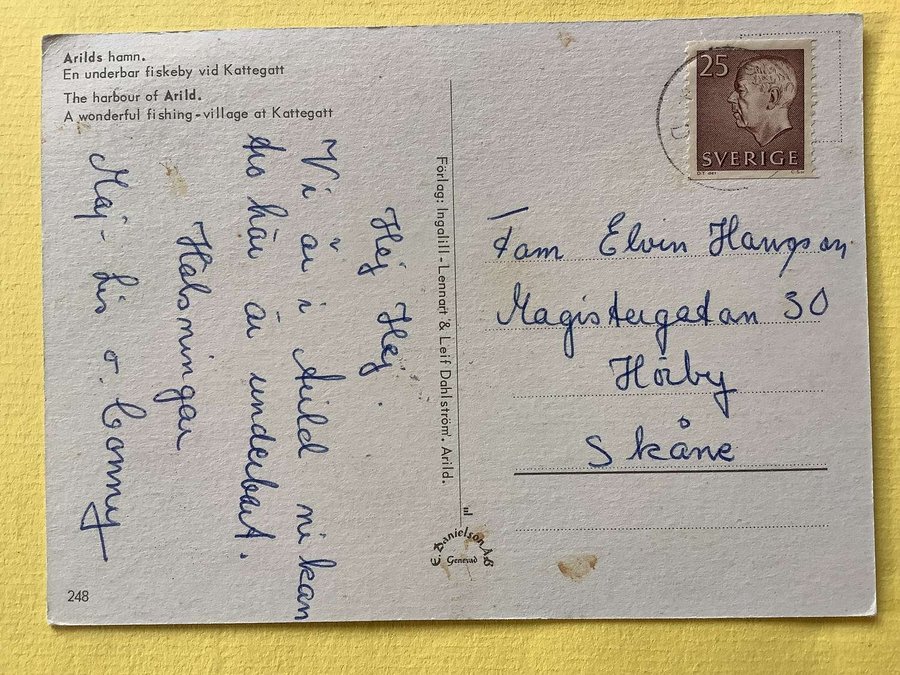 Arilds hamn.
En underbar fiskeby vid Kattegatt
The harbour of Arild.
A wonderful fishing-village at Kattegatt
Hej Hej.
Vi är i Arild ni kan
tro här är underbart.
Hälsningar
Maj-Lis o. Conny
248
Förlag: Ingalill-Lennart & Leif Dahlström. Arild.
E. Danielson AB
Genevad
25
SVERIGE
Fam Elvin Hansson
Magistergatan 30
Hörby
Skåne